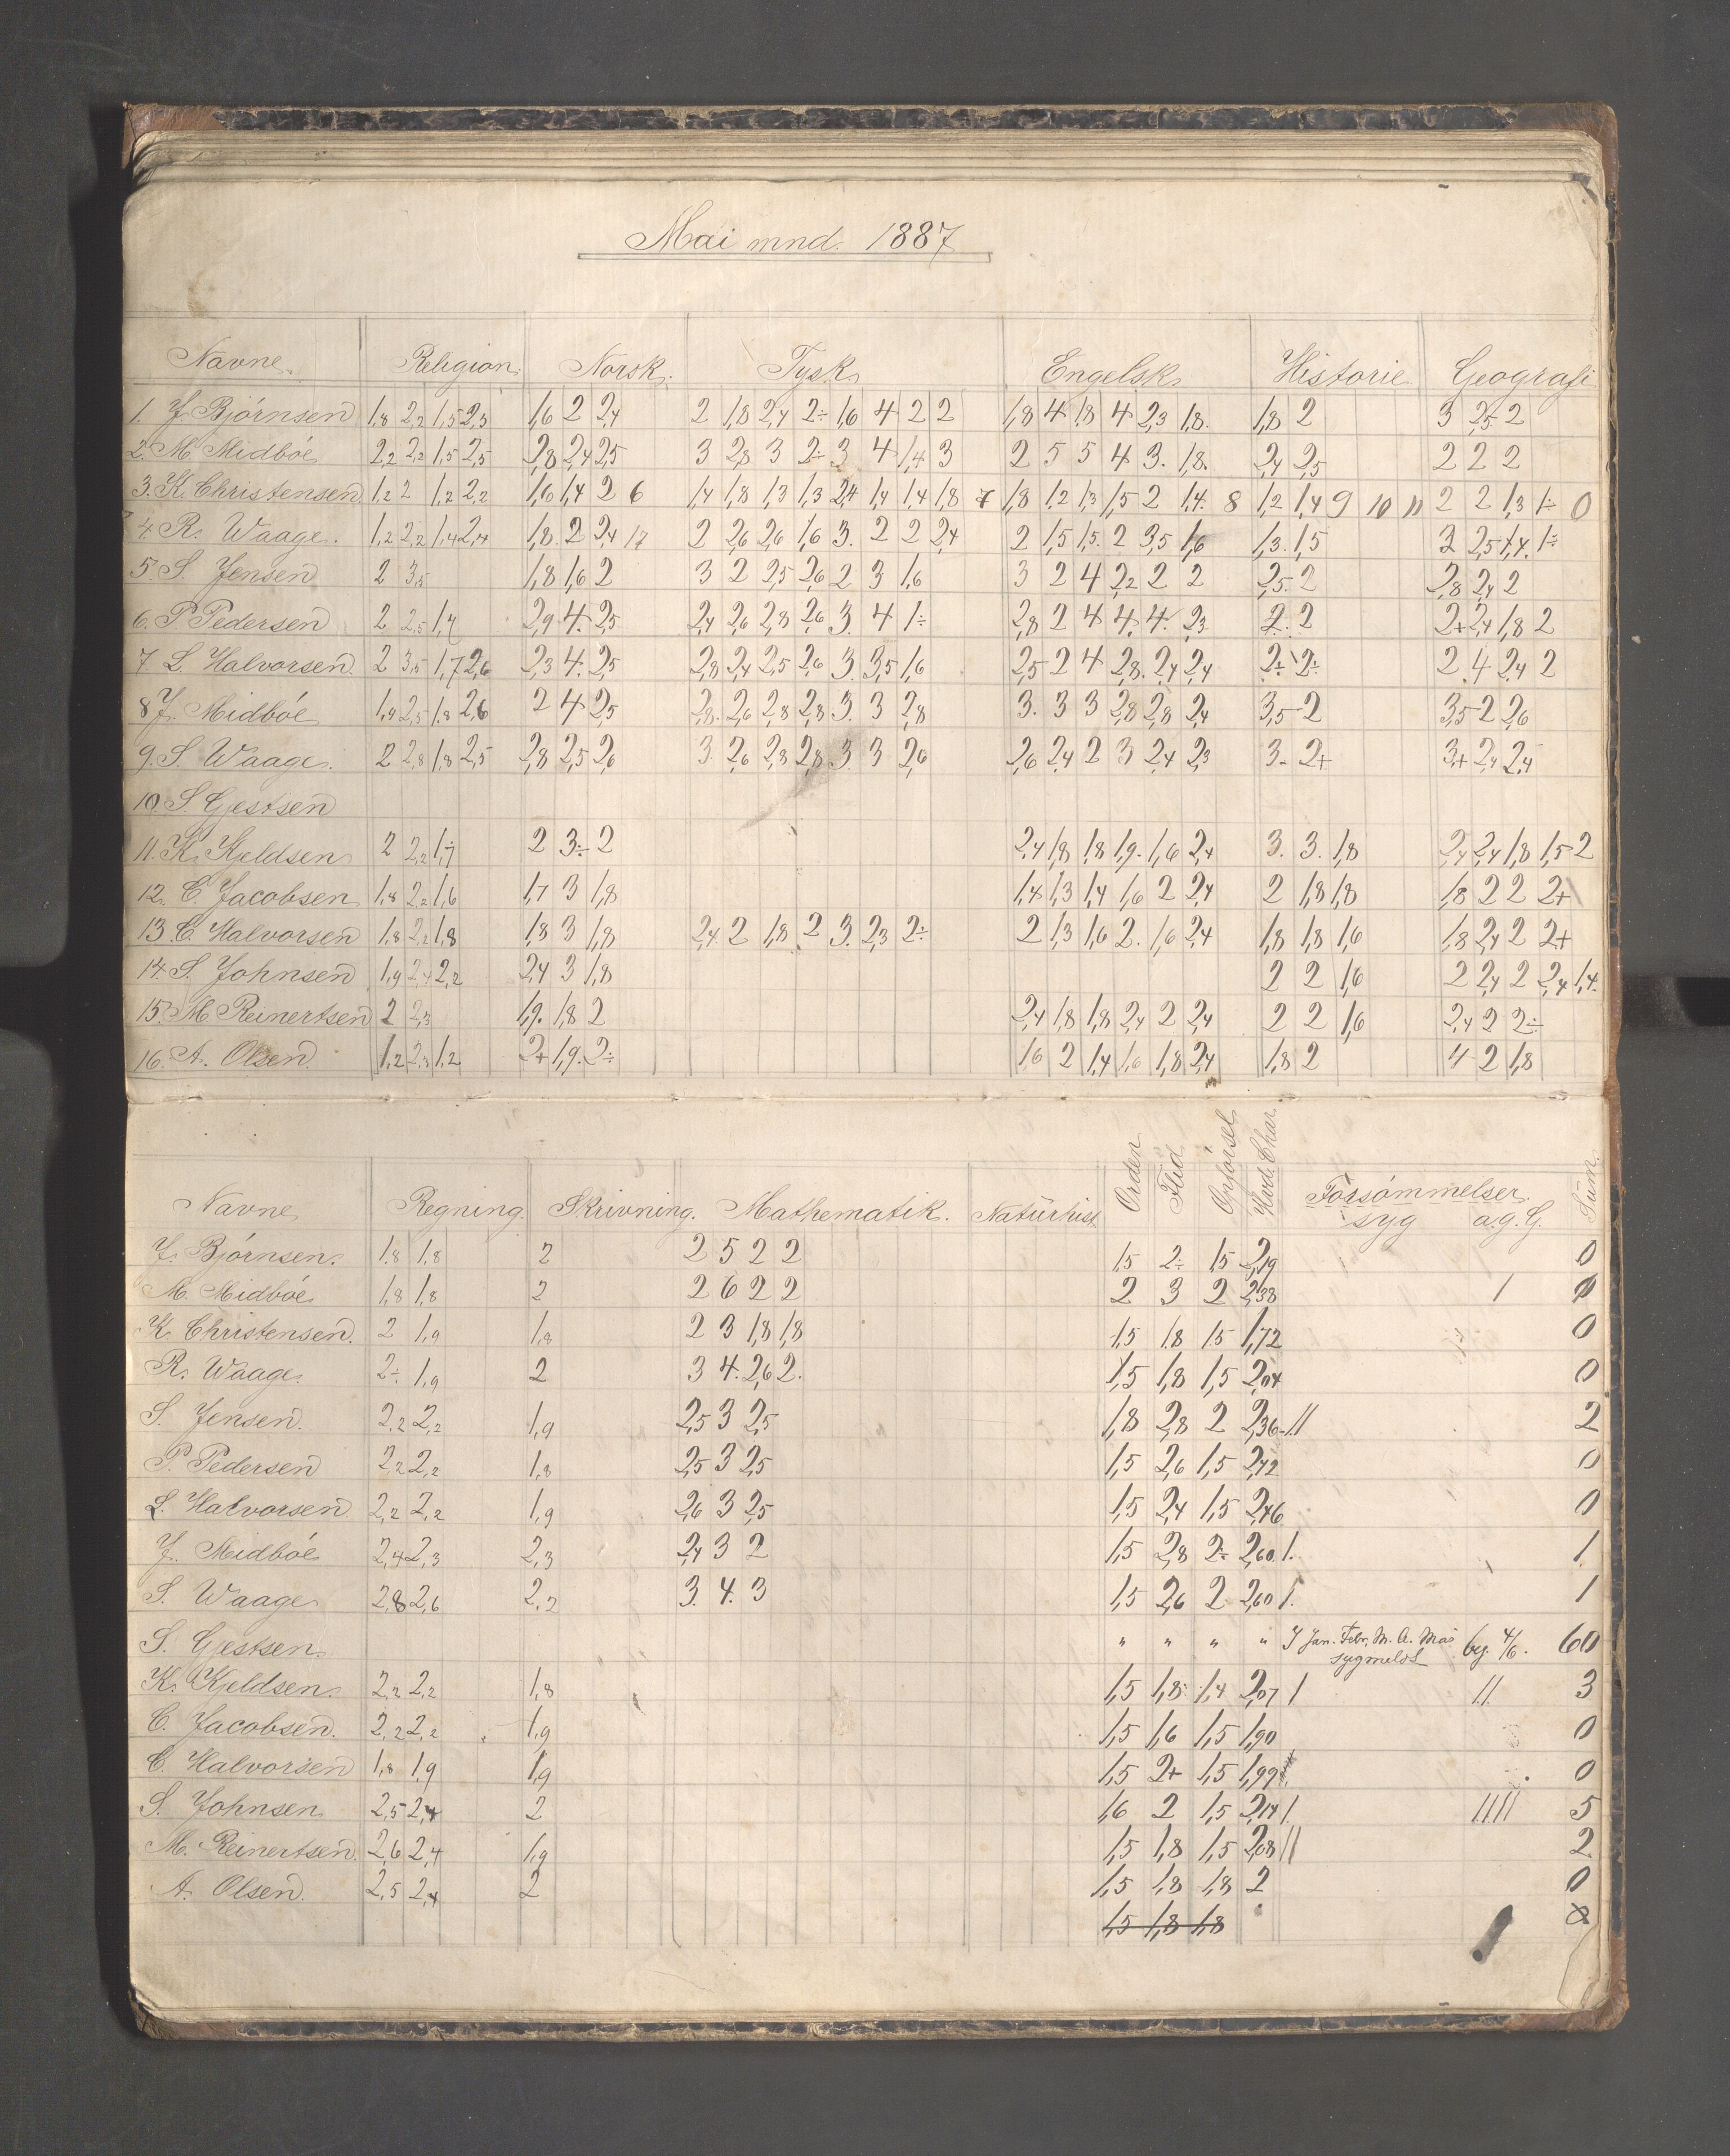 Mai mnd. 1887
Navne. Religion. Norsk. Tysk Engelsk Historie Geografi
1. J. Bjørnsen 1,8 2,2 1,5 2,3 1,6 2 2,4 2 1,8 2,4 2÷ 1,6 4 2 2 1,8 4 1,8 4 2,3 1,8. 1,8 2 3 2,5 2
2. M. Midbøe 2,2 2,2 1,5 2,5 2,8 2,4 2,5 3 2,8 3 2÷ 3 4 1,4 3 2 5 5 4 3. 1,8. 2,4 2,5 2 2 2
3. K. Christensen 1,2 2 1,2 2,2 1,6 1,4 2 6 1,4 1,8 1,3 1,3 2,4 1,4 1,4 1,8 7 1,8 1,2 1,3 1,5 2 1,4. 8 1,2 1,4 9 10 11 2 2 1,3 1÷ 0
4. R. Waage. 1,2 2,2 1,4 2,4 1,8. 2 2,4 17 2 2,6 2,6 1,6 3. 2 2 2,4 2 1,5 1,5. 2 3,5 1,6 1,3. 1,5 3 2,5 1,4. 1÷
5. S. Jensen 2 3,5 1,8 1,6 2 3 2 2,5 2,6 2 3 1,6 3 2 4 2,2 2 2 2,5. 2 2,8 2,4 2
6. P. Pedersen 2 2,5 1,7 2,9 4. 2,5 2,4 2,6 2,8 2,6 3. 4 1÷ 2,8 2 4 4. 4. 2,3 2. 2 2+ 2,4 1,8 2
7. L. Halvorsen. 2 3,5 1,7 2,6 2,3 4. 2,5 2,8 2,4 2,5 2,6 3. 3,5 1,6 2,5 2 4 2,8. 2,4 2,4 2÷ 2÷ 2 4 2,4 2
8 J. Midbøe 1,9 2,5 1,8 2,6 2 4 2,5 2,8. 2,6 2,8 2,8 3. 3 2,8 3. 3 3 2,8 2,8 2,4 3,5 2 3,5 2 2,6
9. S. Waage. 2 2,8 1,8 2,5 2,8 2,5 2,6 3. 2,6 2,8 2,8 3. 3 2,6 2,6 2,4 2 3 2,4 2,3 3- 2+ 3+ 2,4 2,4
10. S. Gjestsen
11. K. Kjeldsen 2 2,2 1,7 2 3÷ 2 2,4 1,8 1,8 1,9. 1,6 2,4 3. 3. 1,8 2,4 2,4 1,8 1,5 2
12. C. Jacobsen 1,8 2,2 1,6 1,7 3 1,8 1,4 1,3 1,4 1,6 2 2,4 2 1,8 1,8 1,8 2 2 2+
13. C. Halvorsen 1,8 2,2 1,8 1,8 3 1,8 2,4 2 1,8 2 3. 2,3 2÷ 2 1,3 1,6 2. 1,6 2,4 1,8 1,8 1,6 1,8 2,4 2 2+
14. S. Johnsen 1,9 2,4 2,2 2,4 3 1,8 2 2 1,6 2 2,4 2 2,4 1,4.
15. M. Reinertsen 2 2,3 1,9. 1,8 2 2,4 1,8 1,8 2,4 2 2,4 2 2 1,6 2,4 2 2÷
16. A. Olsen. 1,2 2,3 1,2 2+ 1,9. 2÷ 1,6 2 1,4 1,6 1,8 2,4 1,8 2 4 2 1,8
Navne Regning. Skrivning. Mathematik. Naturhist. Orden Flid Opførsel Hvd. Char Forsømmelser. Sum.
syg a.g.G.
J. Bjørnsen. 1,8 1,8 2 2 5 2 2 1,5 2÷ 1,5 2,19 0
M. Midbøe 1,8 1,8 2 2 6 2 2 2 3 2 2,38 1
K. Christensen. 2 1,9 1,8 2 3 1,8 1,8 1,5 1,8 1,5 1,72 0
R. Waage. 2÷ 1,9 2 3 4. 2,6 2. 1,5 1,8 1,5 2,04 0
S. Jensen. 2,2 2,2 1,9 2,5 3 2,5 1,8 2,8 2 2,36 11 2
P. Pedersen 2,2 2,2 1,8 2,5 3 2,5 1,5 2,6 1,5 2,42 0
L. Halvorsen 2,2 2,2 1,9 2,6 3 2,5 1,5 2,4 1,5 2,46 0
J. Midbøe 2,4 2,3 2,3 2,4 3 2 1,5 2,8 2÷ 2,60 1. 1
S. Waage 2,8 2,6 2,2 3. 4. 3 1,5 2,6 2 2,60 1. 1
S. Gjestsen. " " " " I Jan. Febr, M. A. Mai by. 4/6. 60
sygmeldt
K. Kjeldsen. 2,2 2,2 1,8 1,5 1,8 1,4 2,07 1 11. 3
C. Jacobsen. 2,2 2,2 1,9 1,5 1,6 1,5 1,90 0
C. Halvorsen 1,8 1,9 1,9 1,5 2+ 1,5 1,99 0
S. Johnsen 2,5 2,4 2 1,6 2 1,5 2,14 1. 1111 5
M. Reinertsen. 2,6 2,4 1,9 1,5 1,8 1,5 2,08 11 2
A. Olsen. 2,5 2,4 2 1,5 1,8 1,8 2 0
1,5 1,8 1,8